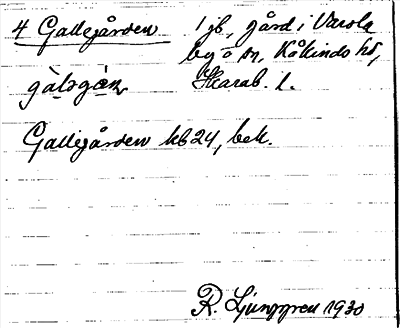 4 Gallegården 1 jb, gård i Varola
by o sn, Kåkinds hd,
gàlsgàɳ Skarab. l.
Gallegården kb 24, bek.
R. Ljunggren 1930